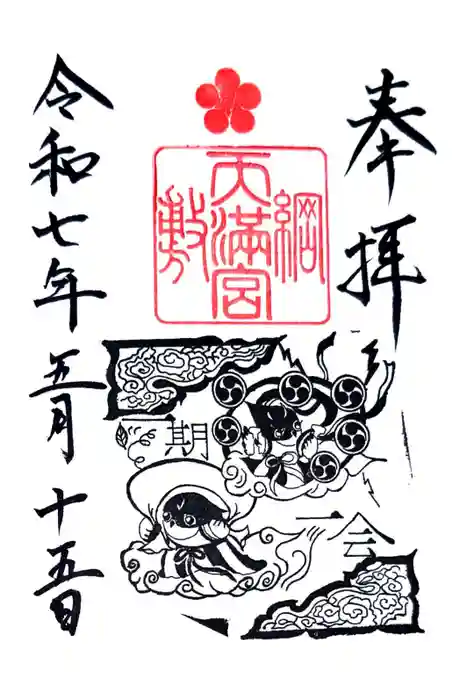 奉拝
綱敷天満宮
一期一会
令和七年五月十五日